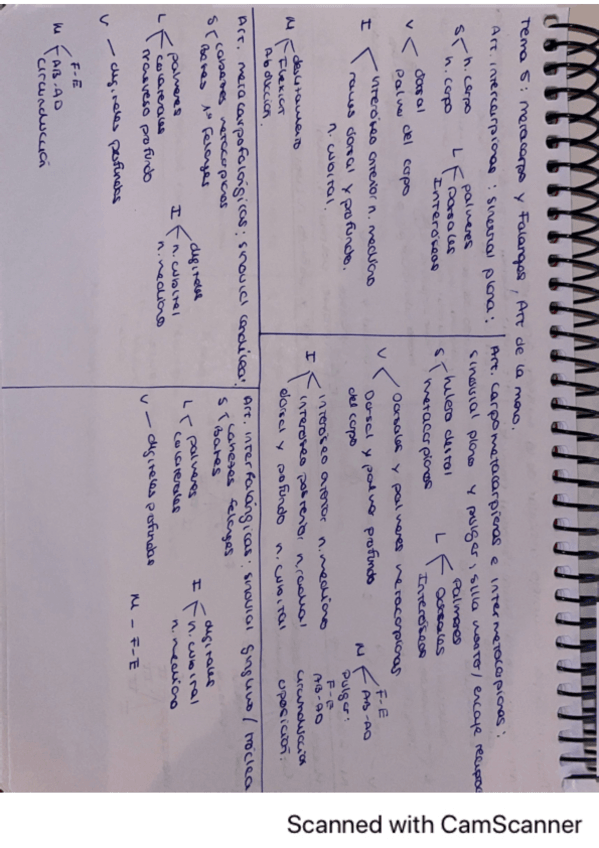 Tema 5: metacarpo y Falanges, Art de la mano.
Art. intercarpianas: sinovial plana:
S h. carpo
h. carpo
L palmares
Dorsales
Interóseos
V dorsal
Palma del carpo
I interóseo anterior n. mediano
ramos dorsal y profundo.
n. cubital.
M deslizamiento
Flexión
Abducción.
Art. carpometacarpianas e intermetacarpianas:
sinovial plana y pulgar, silla montar/ encaje recíproco
S hilera distal
metacarpianos
L Palmares
Dorsales
Interóseos
V Dorsales y palmares metacarpianas
Dorsal y palmar profundo
del carpo
I interóseo anterior n. mediano
interóseo posterior n. radial
dorsal y profundo n. cubital
M F-E
AB-AD
Pulgar:
F-E
AB-AD
circunducción
oposición.
Art. metacarpofalángicas: sinovial condílea:
S Cabezas metacarpianos
Bases 1ª Falanges
L palmares
colaterales
trasverso profundo
I digitales
n. cubital
n. mediano
V — digitales profundas
M F-E
AB-AD
circunducción
Art. interfalángicas: sinovial gínglimo/ tróclea
S Cabezas falanges
Bases
L palmares
colaterales
I digitales
n. cubital
n. mediano
V — digitales profundas
M - F-E
Scanned with CamScanner